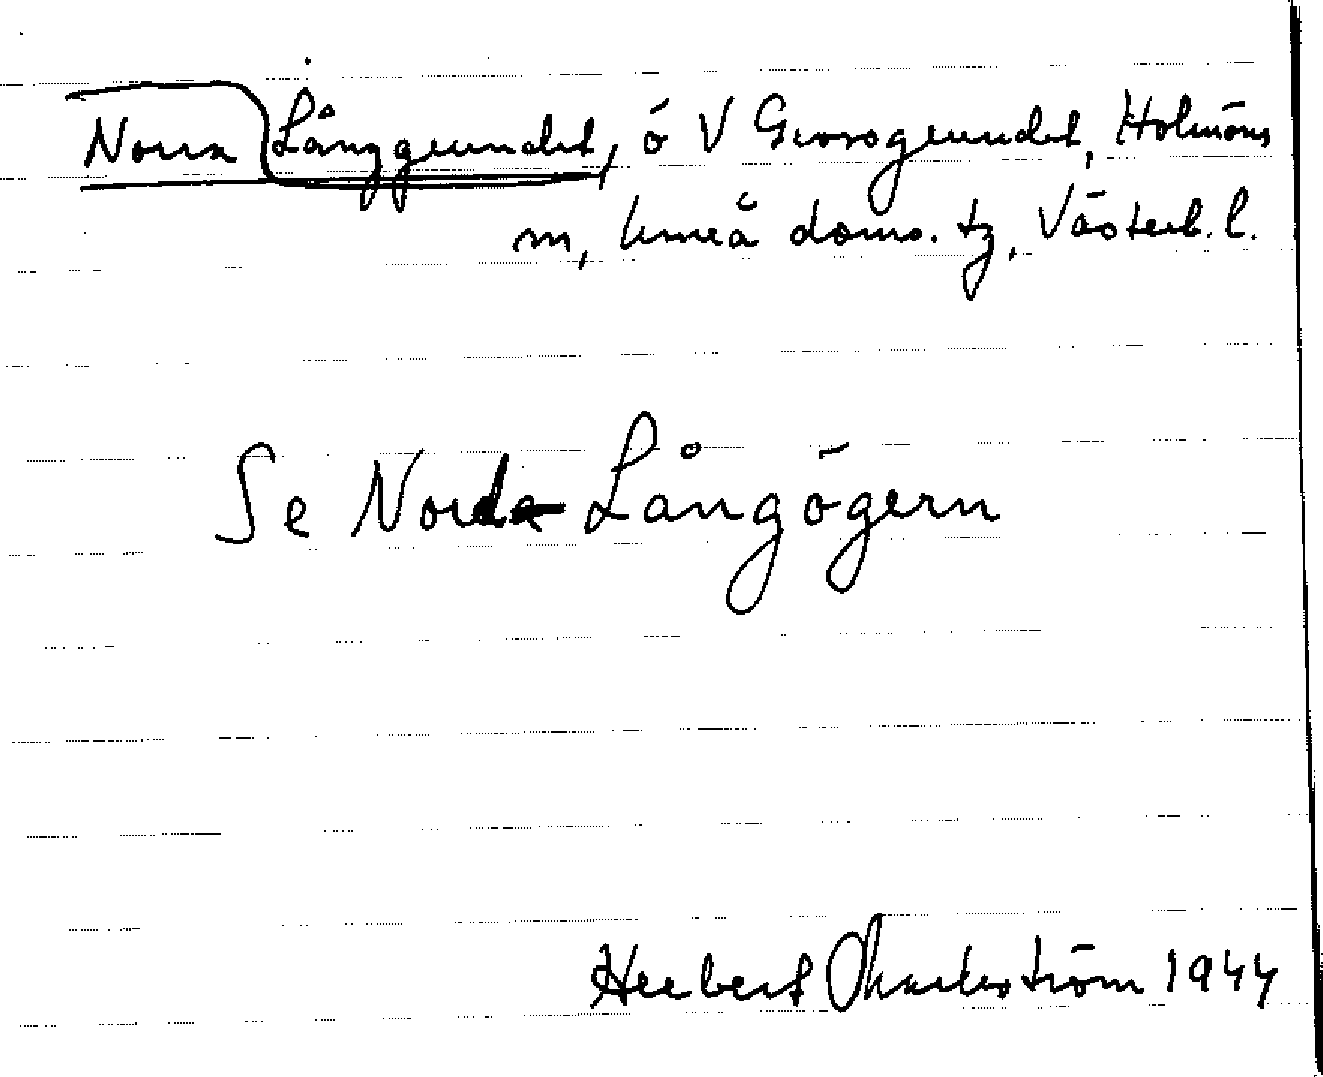 Norra Långgrundet, ö V Grossgrundet, Holmöns
m, Umeå doms. tg, Västerb. l.
Se Norda Långögern
Herbert Markström 1944